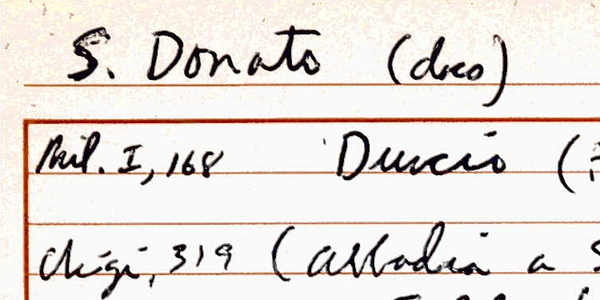 S. Donato (dio)
Mil. I, 168 Duccio (
Chigi, 319 (Abbadia a S